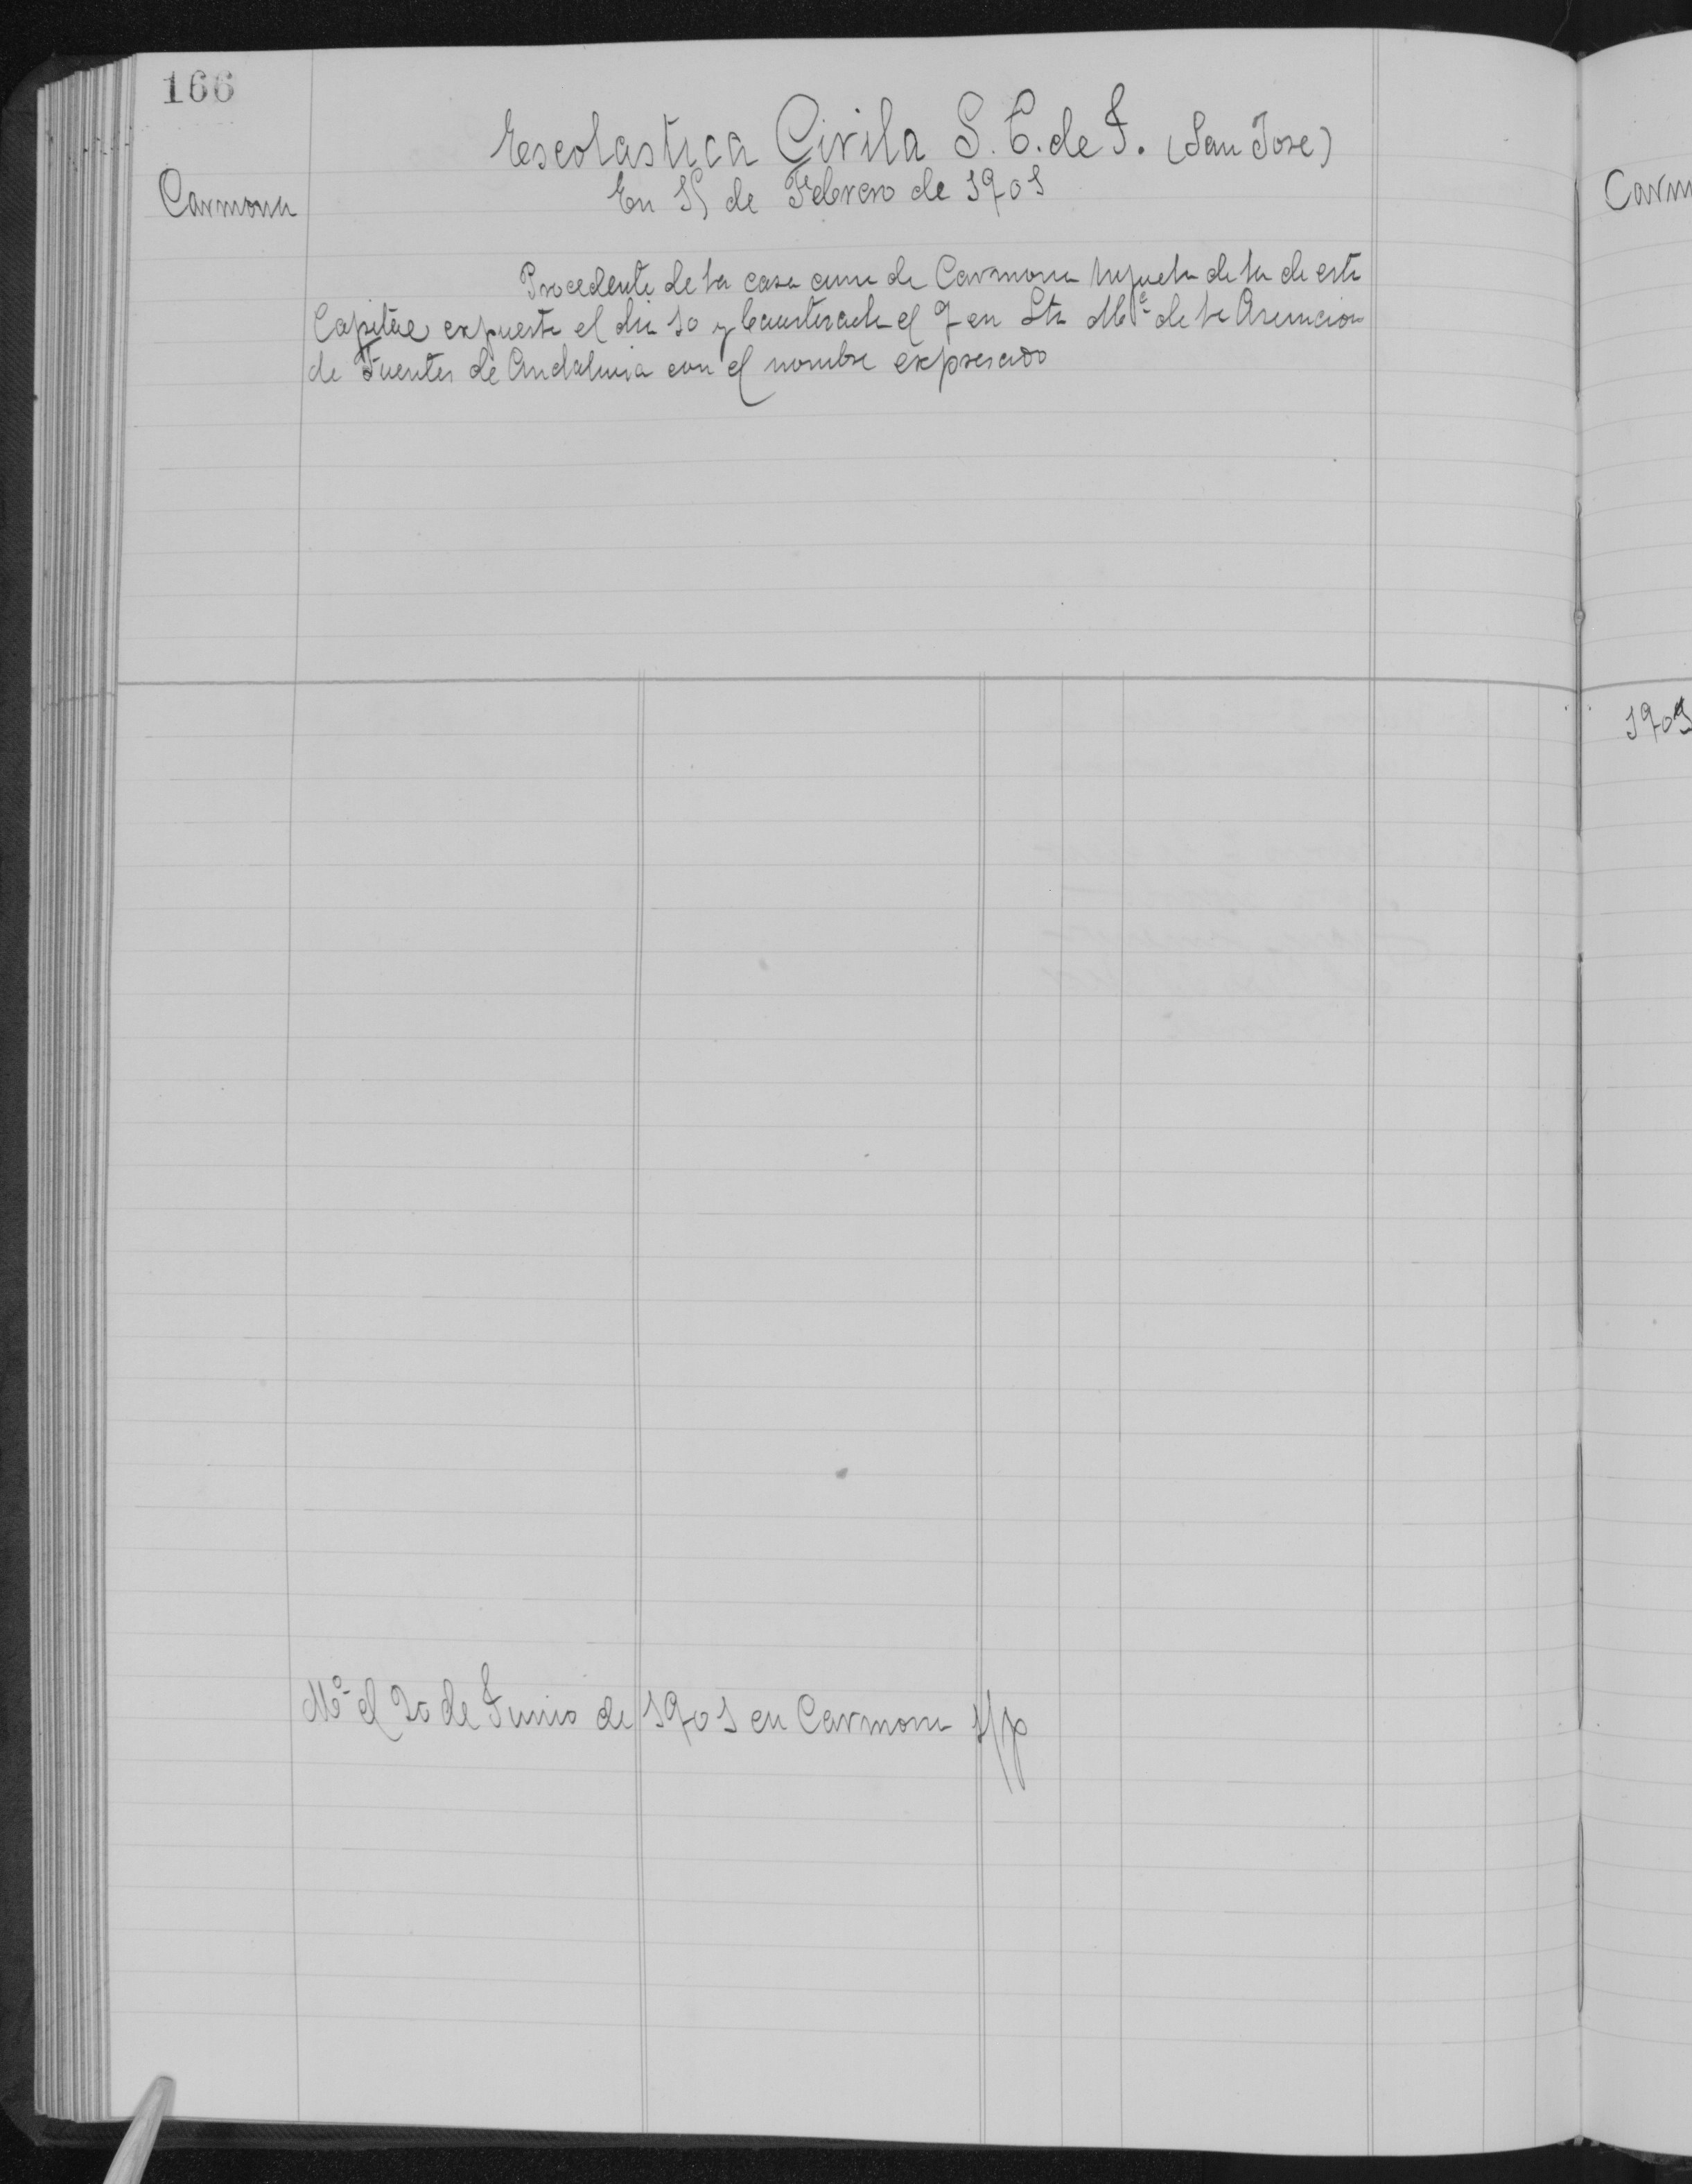 166
Escolastica Civila S. C. de J. (San Jose)
Carmona
En 15 de Febrero de 1901
Procedente de la casa cuna de Carmona sujeta de la de esta
Capital expuesta el dia 10 y bautizada el 7 en Sta Mª de la Asuncion
de Fuentes de Andalucia con el nombre expresado
Mº el 20 de Junio de 1901 en Carmona
Carm
1901